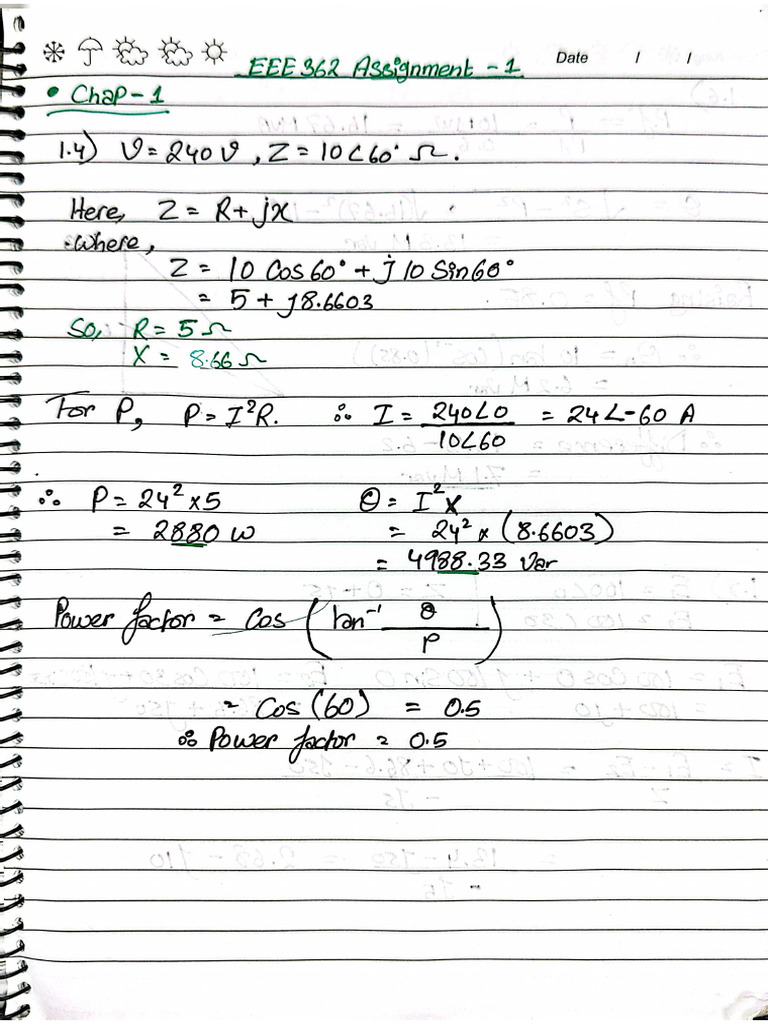 Date / /
EEE 362 Assignment - 1
• Chap - 1
1.4) V = 240 V , Z = 10∠60° Ω.
Here, Z = R + jX
where,
Z = 10 Cos 60° + j 10 Sin 60°
= 5 + j8.6603
So, R = 5 Ω
X = 8.66 Ω
For P, P = I²R. ∴ I = 240∠0 / 10∠60 = 24∠-60 A
∴ P = 24² x 5
= 2880 W
Q = I²X
= 24² x (8.6603)
= 4988.33 Var
Power factor = Cos (tan⁻¹ Q / P)
= Cos (60) = 0.5
∴ Power factor = 0.5